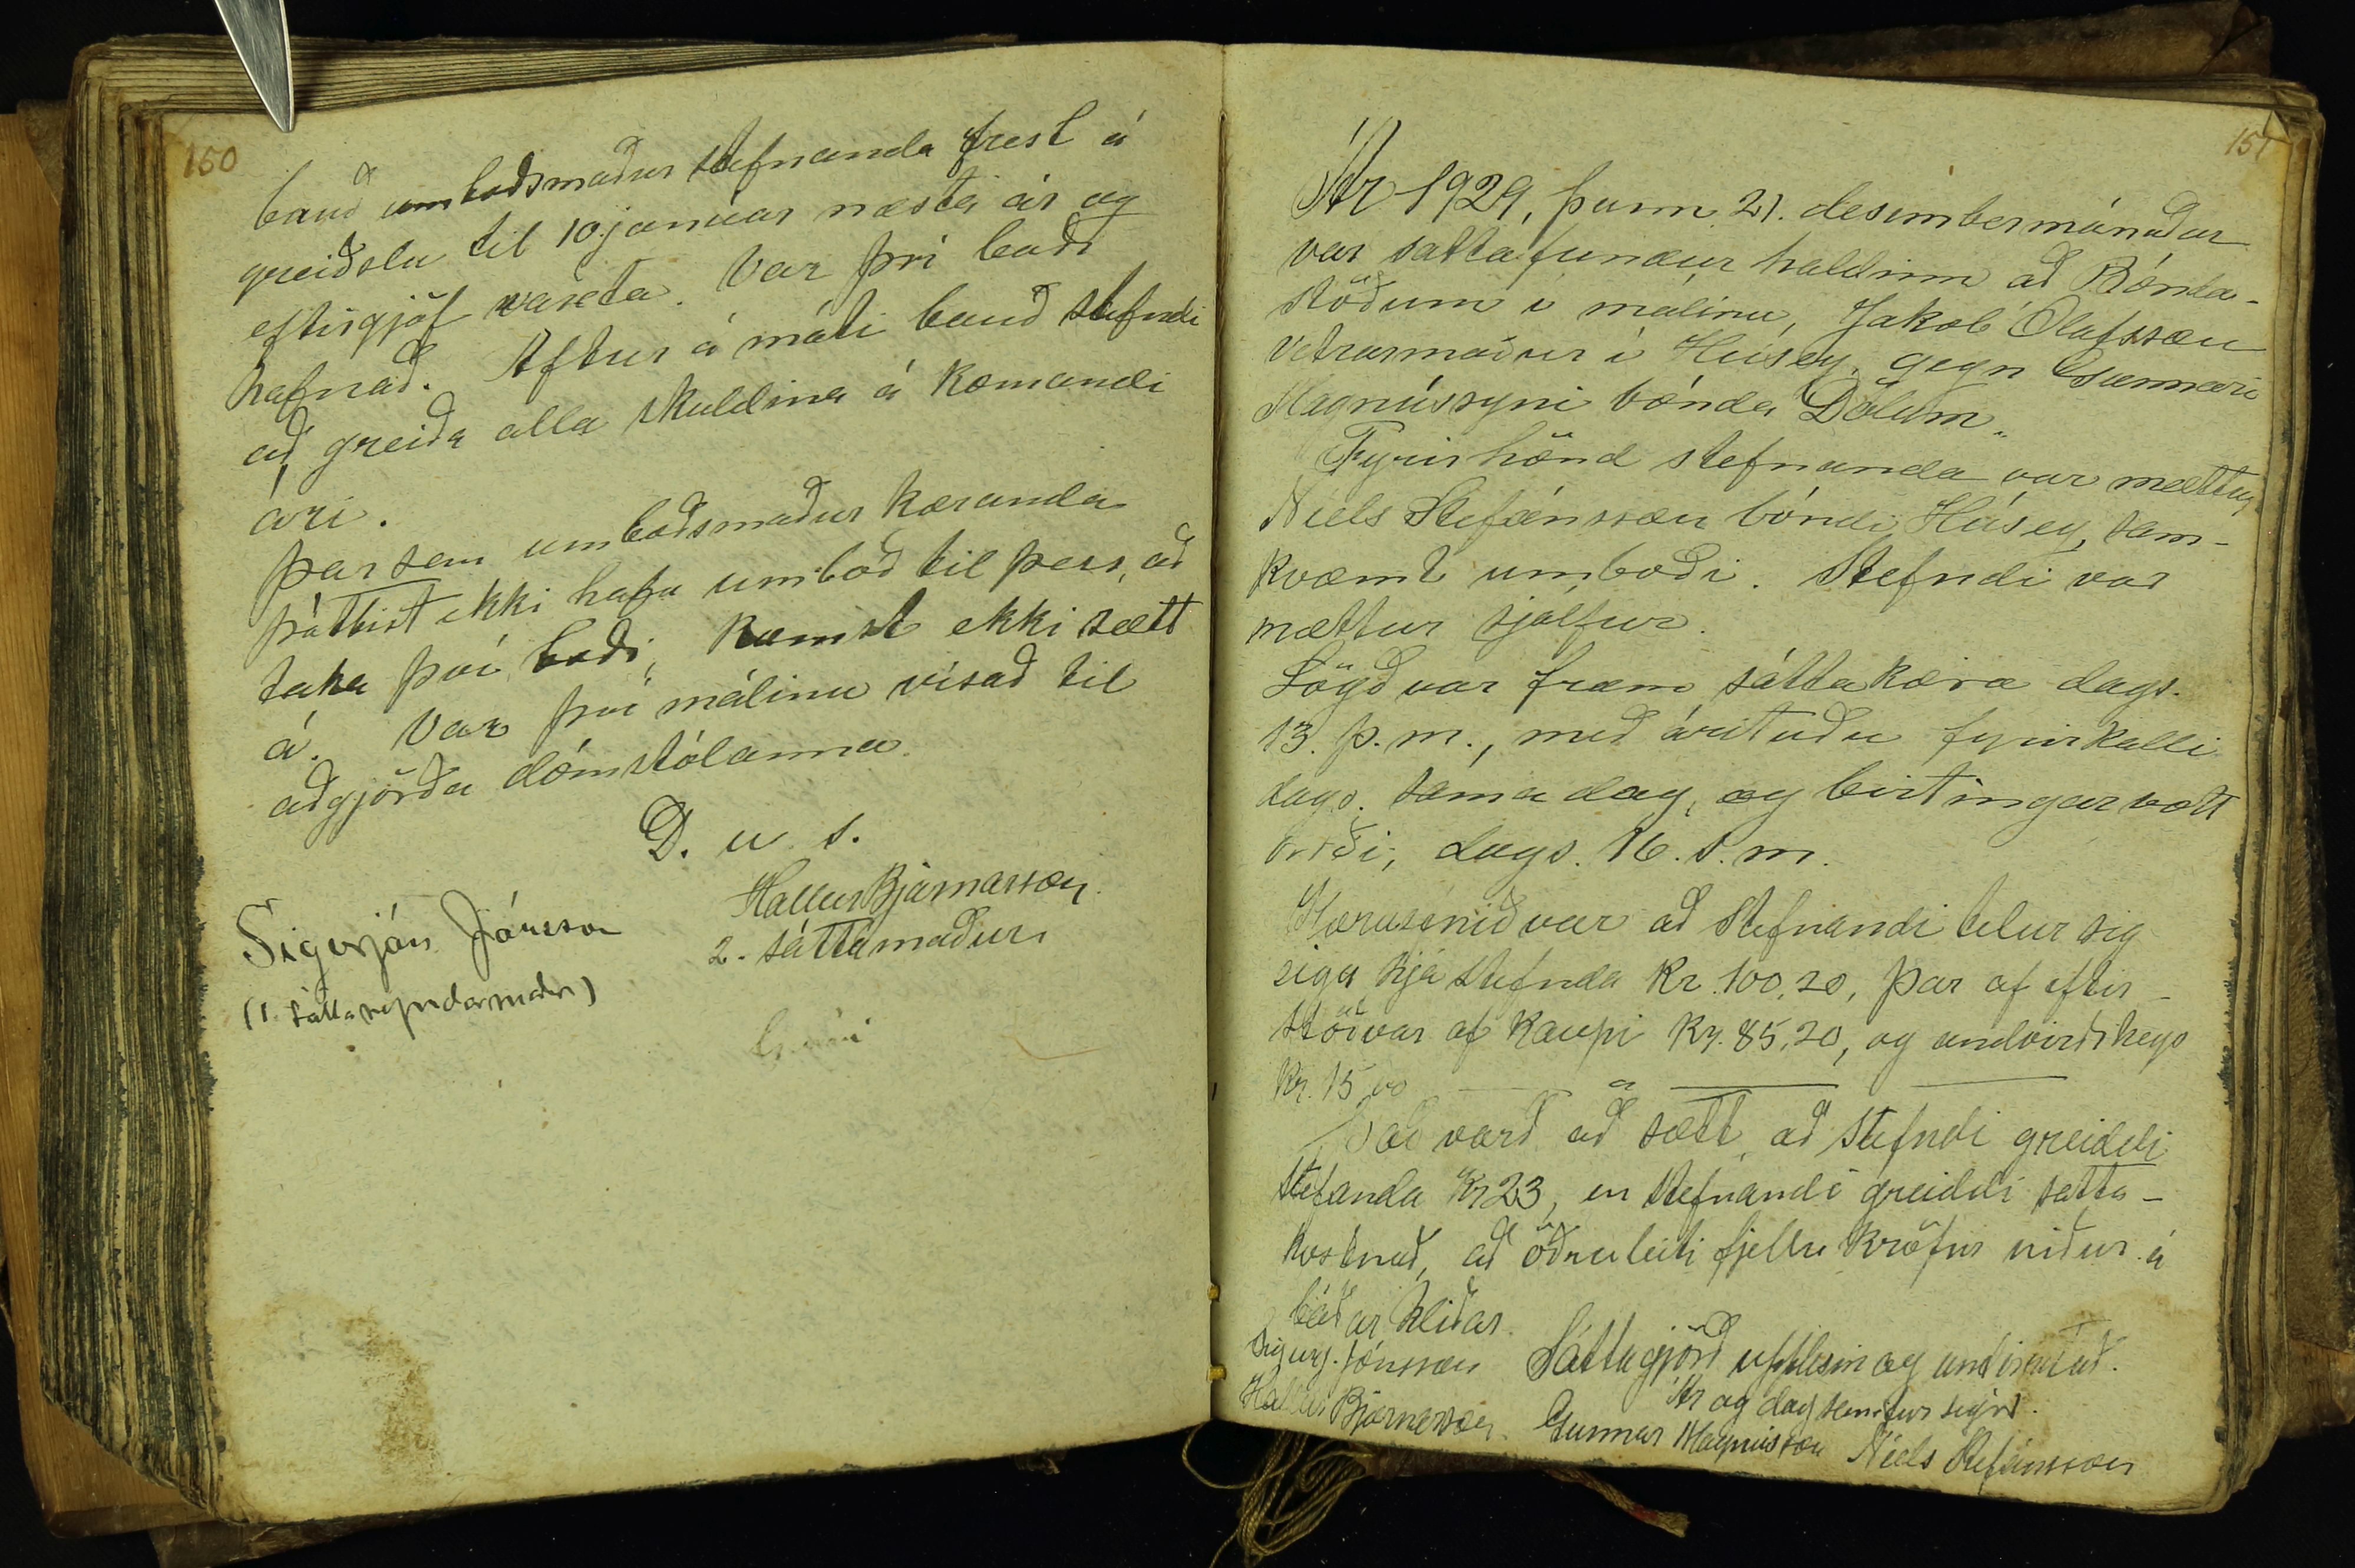 150
bauð umboðsmaður stefnanda frest á
greiðslu til 10. janúar næsta ár og
eftirgjöf vaxta. Var því boði
hafnað. Aftur á móti bauð stefndi
að greiða alla skuldina á komandi
ári.
Þar sem umboðsmaður kæranda
þóttist ekki hafa umboð til þess, að
taka því boði, komst ekki sætt
á. Var því málinu vísað til
aðgjörða dómstólanna.
D. u. s.
Hallur Bjarnarson
2. sáttamaður
Sigurjón Jónsson
(1. sáttanefndarmaðr)
151
Ár 1929, þann 21. desimbermánaðar
var sáttafundur haldinn að Bónda-
stöðum í málinu, Jakob Ólafsson
vetrarmaður í Húsey, gegn Gunnari
Magnússyni bónda Dölum.
Fyrir hönd stefnanda var mættur
Niels Stefánsson bóndi Húsey, sam-
kvæmt umboði. Stefndi var
mættur sjálfur.
Lögð var fram sáttakæra dags.
13. þ. m., með árituðu fyrirkalli
dags. sama dag, og birtingarvott
orði, dags. 16. s. m.
Kæruefnið var að stefnandi telur sig
eiga hjá stefnda Kr. 100,20, þar af eftir-
stöðvar af kaupi Kr. 85,20, og andvirði heys
Kr. 15,00
Það varð að sætt, að stefndi greiddi
stefanda Kr 23, en stefnandi greiddi sátta-
kostnað, að öðruleiti fjellu kröfur niður á
báðar hliðar.
Sáttagjörð upplesin og undirrituð.
Ár og dag sem fur segir.
Sigurj. Jónsson
Hallur Bjarnarson Gunnar Magnússon Niels Stefánsson